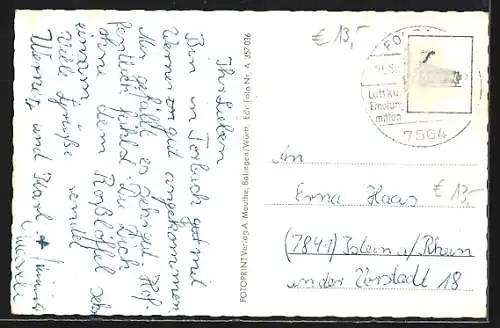 € 13,-
Ihr Lieben
Bin in Forbach gut mit
Werner gut angekommen
Mir gefällt es sehr gut. Hof-
fentlich fühlst Du Dich
ohne dem Roßlöffel sehr
einsam.
Viele Grüße
Werner, und Karl.
FOTOPRINT Verlag A. Mauthe, Balingen/Württ. Echt Foto Nr. A 357 026
FO
Luftku
Erholun
mitten
7564
An
Erna Haas
€ 13,-
(7841) Istein a/Rhein
in der Vorstadt 18